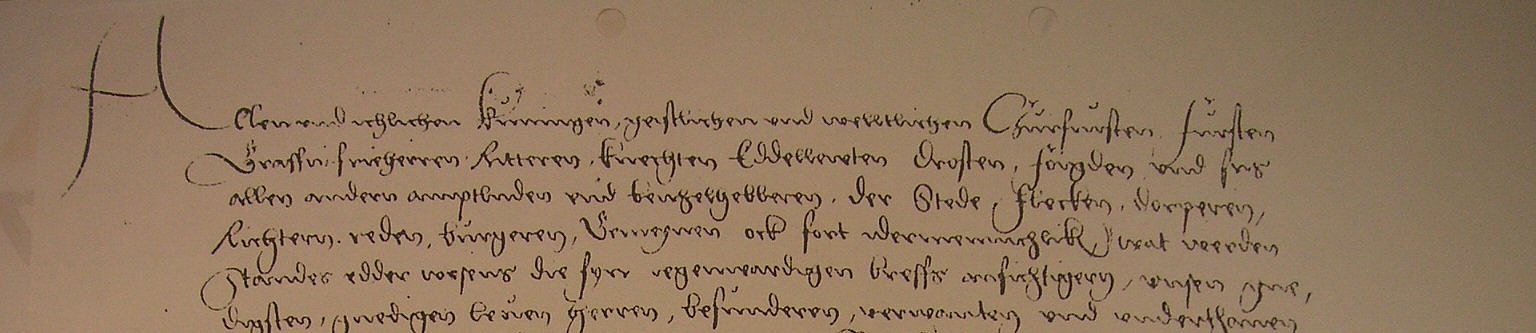 Allen und ichlichen Kuningen, geistlichen und welltlichen Churfursten, fursten
Graffen frieheren Ritteren, knechten Eddellewten Drosten, und sus
allen andern amptluden und bevhelhebberen, der Stede, flecken, dorperen,
Richtern, reden, burgeren, Gemeynen ock fort idermennichlikk, wat weerden
Standes edder wesens die syn tegenwardigen breffs ansichtigern, unsen gne,
digsten, gnedigen leuen Herren, besunderen, verwanten und underthanen